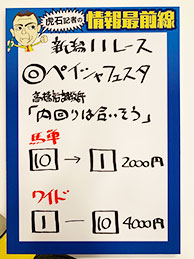 虎石記者の
情報最前線
新潟11レース
◎ペイシャフェスタ
「内回りは合いそう」
馬単
10 → 1 2000円
ワイド
1 — 10 4000円